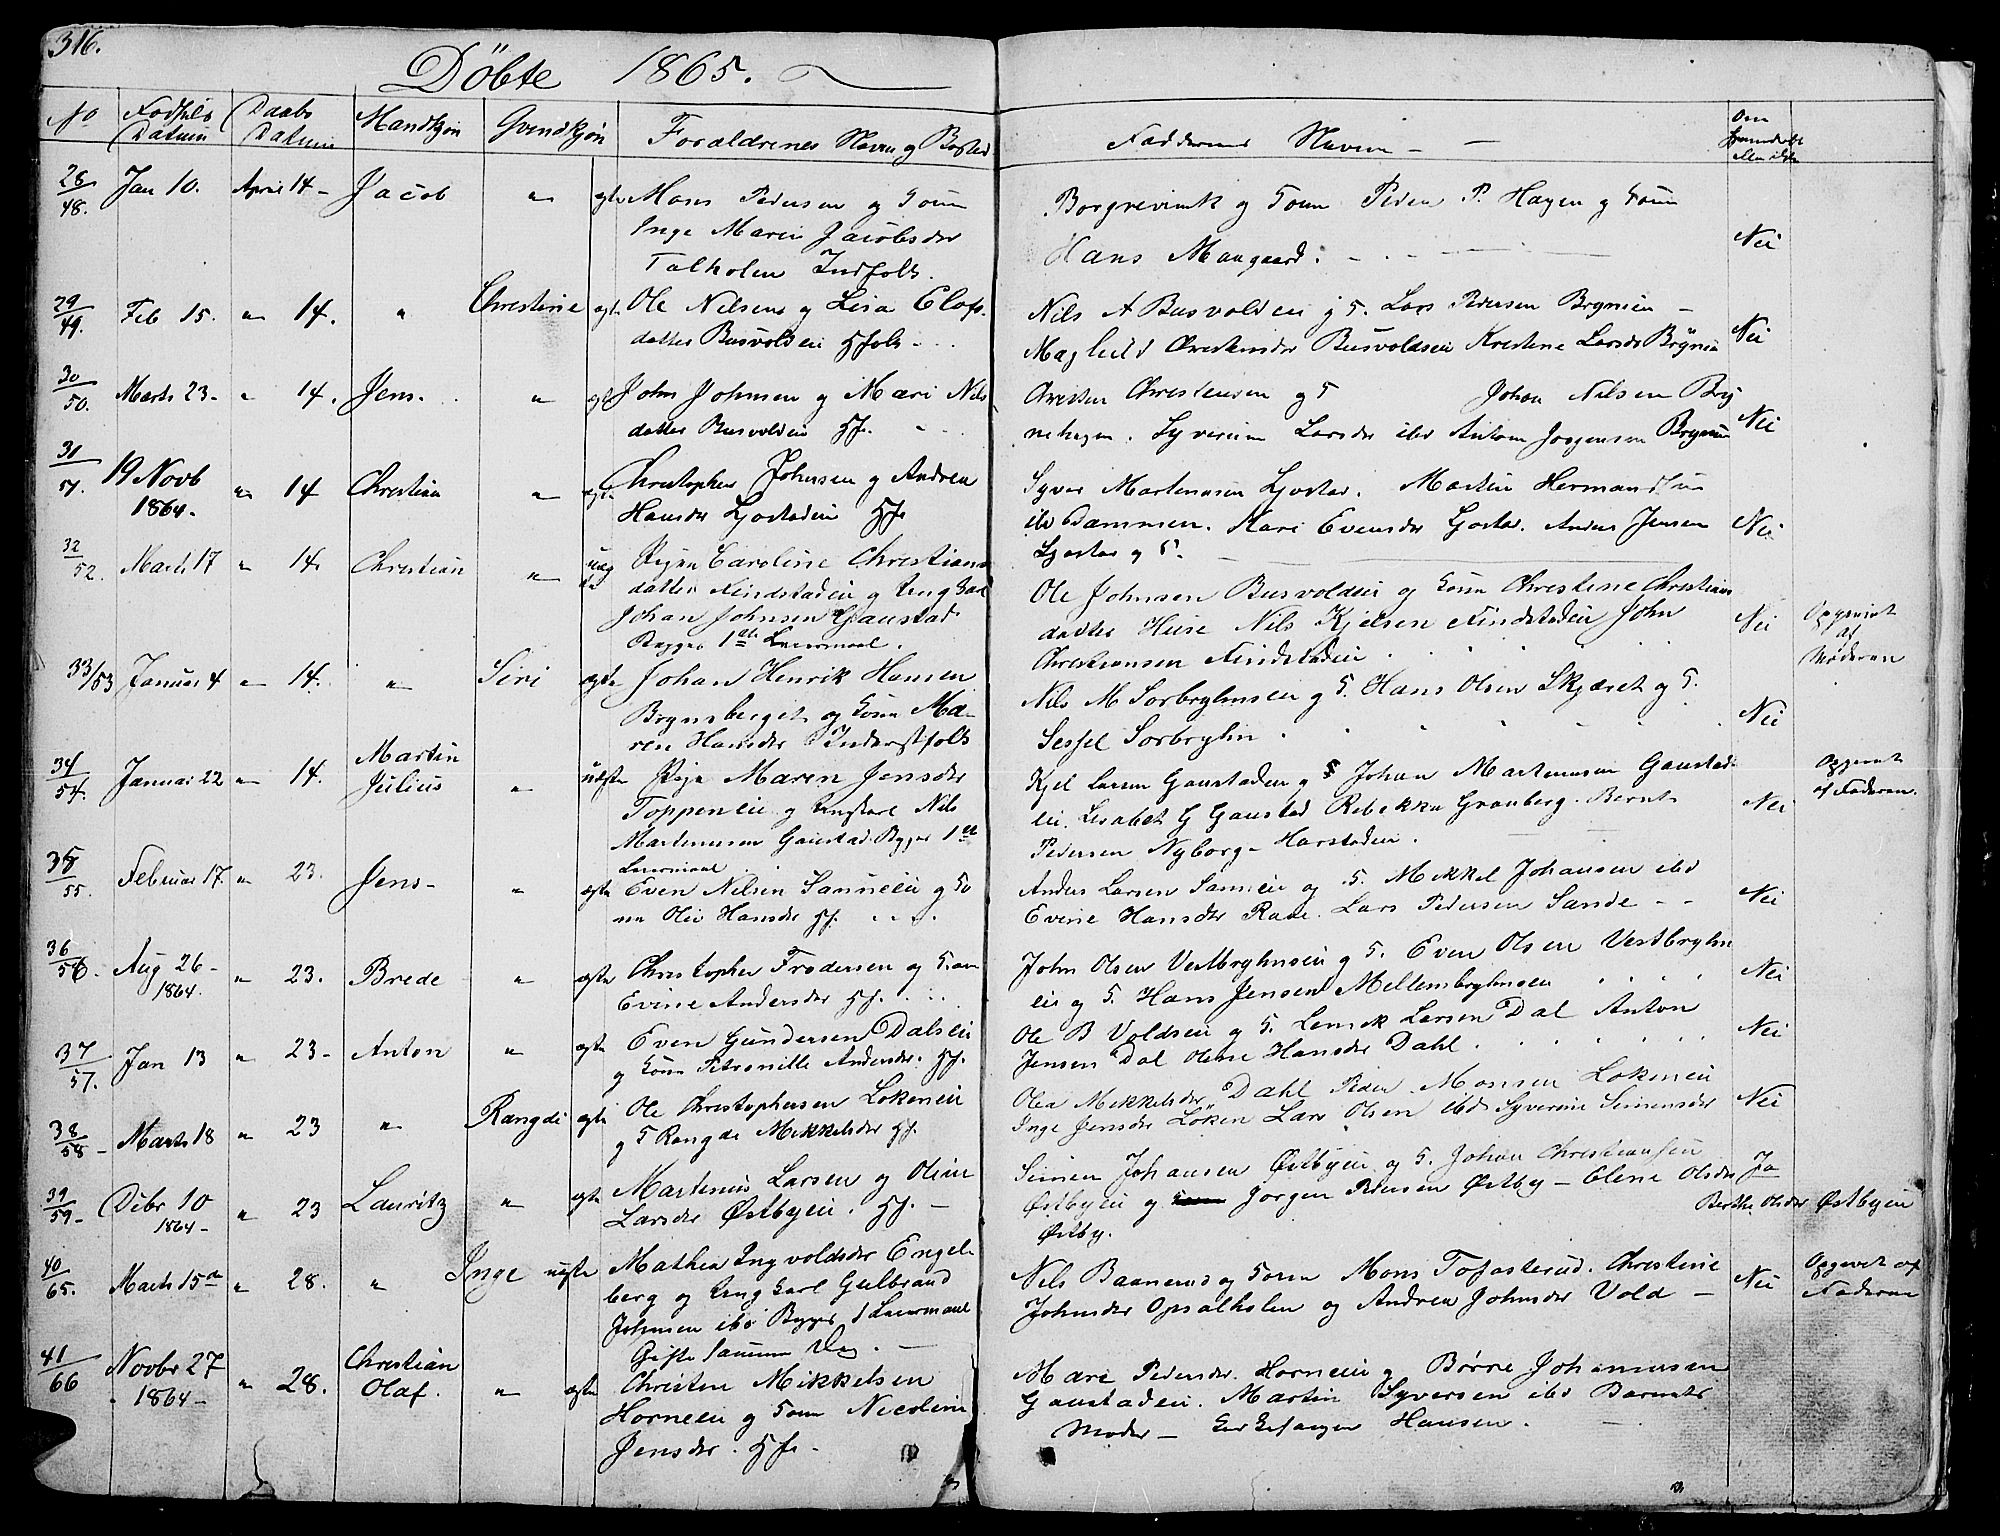 316.
Döbte 1865.
No Födsels Datum Daabs Datum Mandkjön Qvindkjön Forældrenes Navn og Bosted Faddernes Navne Om
28/48. Jan 10. April 14 Jacob " ægte Mons Pedersen og
Inge Marie Jacobsdr
Talholen Indfolk.
Borgrevink og P. Hagen og
Hans Mangaard. Nei
29/49. Feb 15. " 14. " Christine ægte Ole Nilsen og Lisa Elofs
datter Busvolden
Nils A Busvolden g 5. Lars Pedersen Brynien
Maghild Christensdr Busvolden Kristine Larsdr Nei
30/50. Marts 23. " 14. Jens. " John Johnsen og Mari Nils
datter Busvolden Hf.
Christen Christensen og 5 Johan Nilsen Bry
nehagen. Syverine Larsdr ibd Anton Jorgensen Nei
31/51. 19 Novb 1864. " 14 Christian " ægte Christopher Johnsen og Andrea
Hansdr Ljostadeie Hf
Syver Martinusen Ljostad. Martin Herman
ibd Dammen. Kari Evensdr Ljostad. Anders Jensen
Ljostad og 5. Nei
32/52. Marts 17 " 14. Christian " uæg te Pigen Caroline Christians
datter Findstadeie og Ungkarl
Johan Johnsen Gaustad
Begges 1ste Leiermaal.
Ole Johnsen Busvoldeie og Kone Christine Christians
datter Huse Nils Kjelsen Findstadeie John
Christiansen Findstadeie Nei Opgivet
af
Moderen
33/53 Januar 4 " 14. " Siri ægte Johan Henrik Hansen
Brynsberget og Kone Ma-
ren Hansdr
Nils M Sorbryhnseie og 5. Hans Olsen Skjæret og 5.
Sessel Sorbryhn Nei
34/54. Januar 22 " 14. Martin
Julius " uægte Pige Maren Jensdr
Toppeneie og Ungkarl Nils
Martinusen Gaustad. Begges 1ste
Leiermaal
Kjel Larsen Gaustadeie og 5 Johan Martinusen Gaustad-
eie. Lisabet G Gaustad Rebekka Granberg. Bernt
Pedersen Nyborg - Harstadeie. Nei Opgivet
af Faderen.
35/55. Februar 17. " 23. Jens - " ægte Even Nilsen Sanneeie og Ko
ne Olea Hansdr Hf.
Anders Larsen Sanneeie og 5. Mikkel Johansen ibd
Evine Hansdtr Rade. Lars Pedersen Sande - Nei
36/56. Aug 26 - 1864. " 23. Brede " ægte Christopher Frodersen og
Evine Andersdr Hf.
John Olsen Vestbryhnseie og 5. Even Olsen Vestbryhn
eie og 5. Hans Jensen Mellembryhnseie Nei
37/57. Jan 13 " 23 - Anton " ægte Even Gundersen Dalseie
og Kone Petronille Andersdr. Hf.
Ole B Voldseie og 5. Larsen Dal Anton
Jensen Dal Oline Hansdr Dahl. Nei
38/58 - Marts 18 " 23 " Rangdi ægte Ole Christophersen Lokeneie
og 5 Rangdi Mikkelsdr Hf.
Olea Mikkelsdr Dahl Peder Monsen Lokeneie
Inge Jensdr Löken Lars Olsen ibd Syverine Simensdr Nei
39/59 - Debr 10 1864 - " 23 Lauritz " ægte Martinus Larsen og Oline
Larsdr Østbyeie. Hf. -
Simen Johansen Østbyeie og 5. Johan Christiansen
Østbyeie og Jorgen Pedersen Østby - Elene Olsdr Ja
Berthe Olsdr Østbyeie
Østby.
40/65. Marts 15de " 28. " Inge uægte Mathea Ingvoldsdr Engel-
berg og Ungkarl Gulbrand
Johnsen ibd Begges 1 Leiermaal
Gifte samme Dag. -
Nils Baaneruds og Kone Mons Tofasterud. Christine
Johnsdr Opsalholen og Andrea Johnsdr Vold - Nei Opgivet af
Faderen
41/66 Novbr 27 1864 - " 28. Christian
Olaf. " ægte Christen Mikkelsen
Horneeie og Kone Nicoline
Jensdr. Hf. -
Mari Pedersdr. Horneeie og Børre Johannesen
Gaustadeie. Martin Syversen ibd Barnets
Moder - Kirkesanger Hansen.